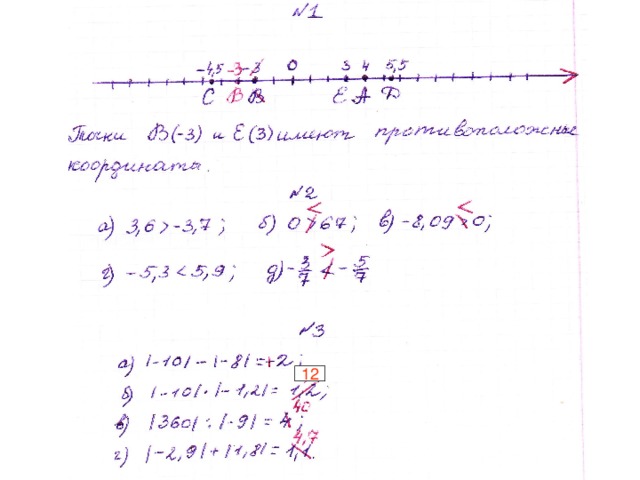 №1
-4,5 -3 -3 0 3 4 5,5
C B B E A D
Точки B(-3) и E(3) имеют противоположные
координата.
№2
<
<
а) 3,6 > -3,7; б) 0 > 67; в) -8,09 > 0;
>
г) -5,3 < 5,9; д) -3/7 < -5/7
№3
а) |-10| - |-8| = +2;
12
б) |-10| · |-1,2| = 1,2;
40
в) |360| : |-9| = 4;
4,7
г) |-2,9| + |1,8| = 1,1.